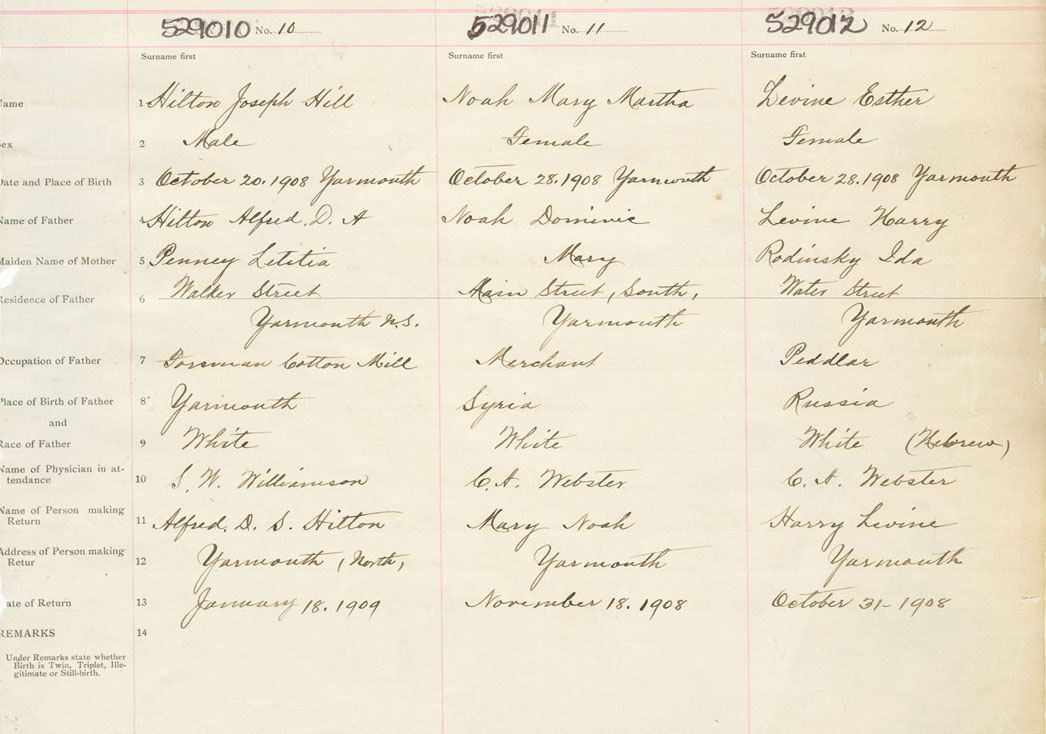 529010 No. 10 529011 No. 11 529012 No. 12
Surname first Surname first Surname first
ame 1 Hilton Joseph Hill Noah Mary Martha Levine Esther
ex 2 Male Female Female
Date and Place of Birth 3 October 20. 1908 Yarmouth October 28. 1908 Yarmouth October 28. 1908 Yarmouth
Name of Father 4 Hilton Alfred. D. A Noah Dominic Levine Harry
Maiden Name of Mother 5 Penney Letitia Mary Rodinsky Ida
Residence of Father 6 Walker Street Main Street, South, Water Street
Yarmouth N.S. Yarmouth Yarmouth
Occupation of Father 7 Forsman Cotton Mill Merchant Peddlar
Place of Birth of Father 8 Yarmouth Syria Russia
and
Race of Father 9 White White White (Hebrew)
Name of Physician in at-
tendance 10 S. W. Williamson C. A. Webster C. A. Webster
Name of Person making
Return 11 Alfred. D. S. Hilton Mary Noah Harry Levine
Address of Person making
Retur 12 Yarmouth, North, Yarmouth Yarmouth
ate of Return 13 January 18. 1909 November 18. 1908 October 31-1908
REMARKS 14
Under Remarks state whether
Birth is Twin, Triplet, Ille-
gitimate or Still-birth.